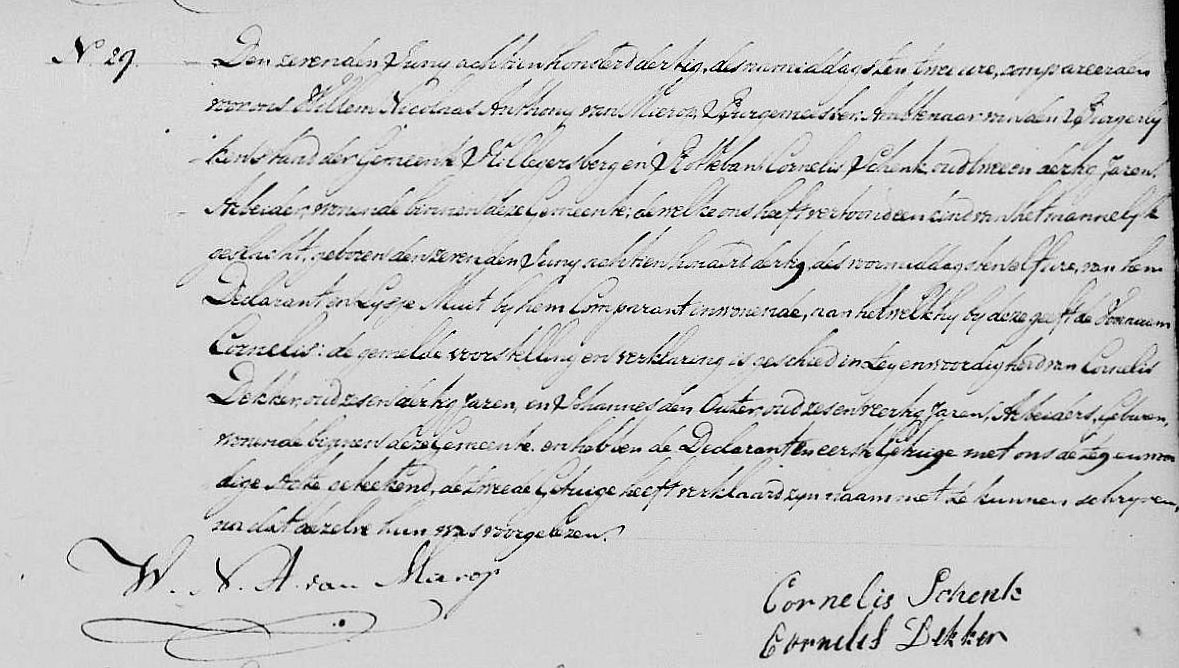 No. 29.
Den zevenden Juny achttien honderd dertig, des namiddags ten twee ure, compareerden
voor ons Willem Nicolaas Anthony van Mierop, Burgemeester, Ambtenaar van den Burgerly
ken stand der Gemeente Hillegersberg en Rotteban, Cornelis Schenk, oud twee en dertig Jaren,
Arbeider, wonende binnen deze Gemeente, dewelke ons heeft vertoond een kind van het mannelyk
geslacht, geboren den zevenden Juny achttien honderd dertig, des voormiddags ten elf ure, van hem
Declarant en Lysje Muit by hem Comparant inwonende, aan hetwelk hy by deze geeft de Voornaam
Cornelis: de gemelde voorstelling en verklaring is geschied in tegenwoordigheid van Cornelis
Dekker, oud zes en dertig Jaren, en Johannes den Outer, oud zes en veertig Jaren, Arbeiders, Geburen,
wonende binnen deze Gemeente. en hebben de Declarant en eerste Getuige met ons de tegenwoor
dige Acte geteekend, de tweede Getuige heeft verklaard zyn naam niet te kunnen schryven,
na dat dezelve hun was voorgelezen.
W. N. A. van Mierop
Cornelis Schenk
Cornelis Dekker